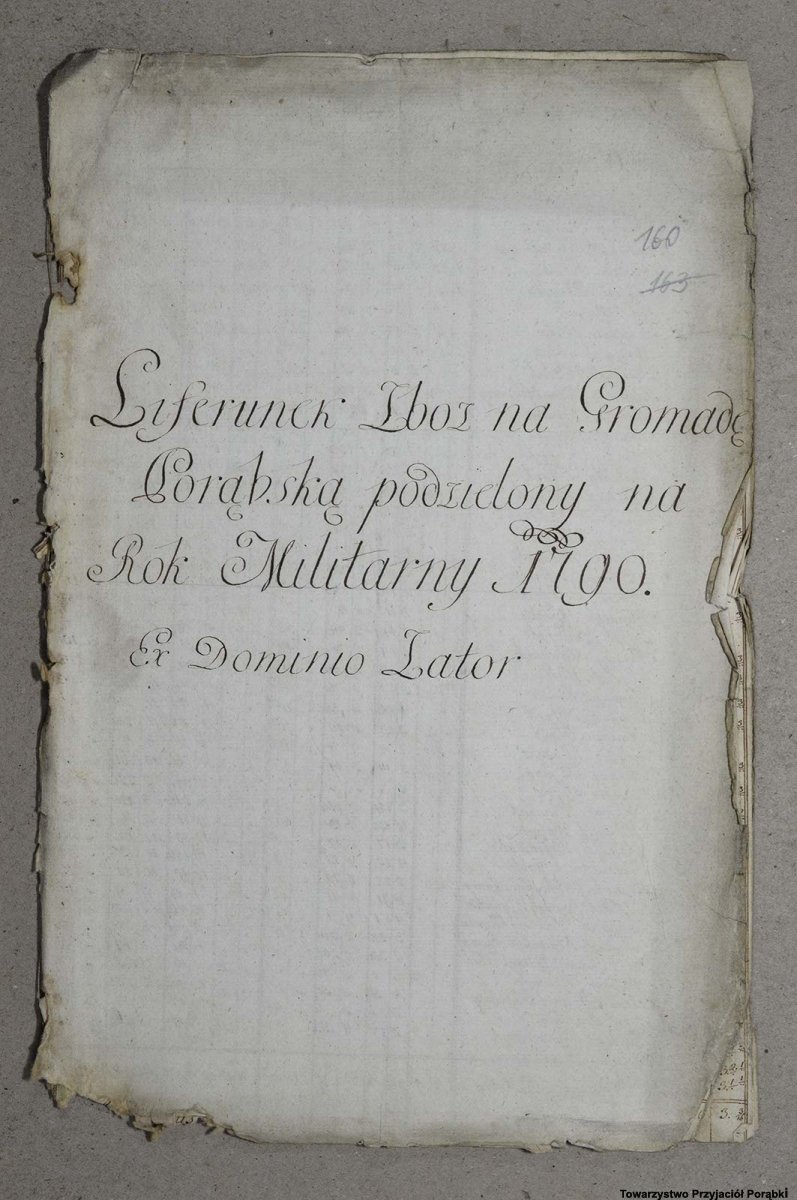 160
163
Liferunek Zboz na Gromadę
Porąbską podzielony na
Rok Militarny 1790.
Ex Dominio Zator
Towarzystwo Przyjaciół Porąbki